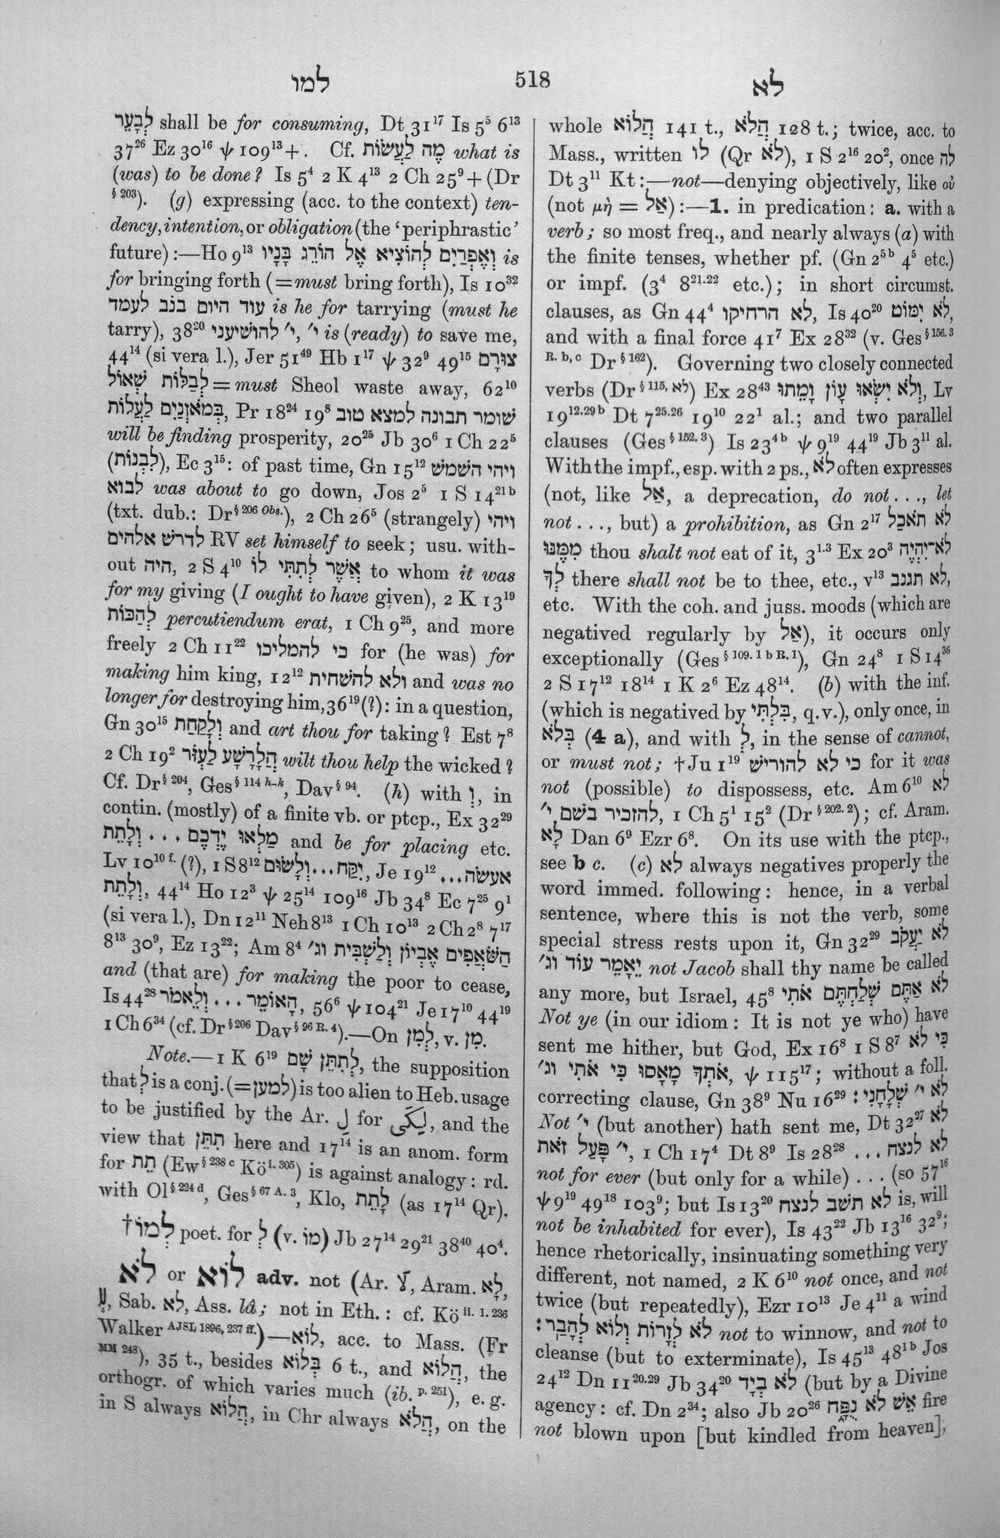 למו 518 לא
לְבָעֵר shall be for consuming, Dt 31¹⁷ Is 5⁵ 6¹³
37²⁶ Ez 30¹⁶ ψ 109¹³+. Cf. מֶה לַעֲשׂוֹת what is
(was) to be done? Is 5⁴ 2 K 4¹³ 2 Ch 25⁹+(Dr
§ 203). (g) expressing (acc. to the context) ten-
dency, intention, or obligation (the ‘periphrastic’
future):—Ho 9¹³ וְאֶפְרַיִם לְהוֹצִיא אֶל הוֹרֵג בָּנָיו is
for bringing forth (=must bring forth), Is 10³²
עוד היום בנב לעמד is he for tarrying (must he
tarry), 38²⁰ י״, להושיעני י״ is (ready) to save me,
44¹⁴ (si vera l.), Jer 51⁴⁹ Hb 1¹⁷ ψ 32⁹ 49¹⁵ צוּרָם
לְבַלּוֹת שְׁאוֹל=must Sheol waste away, 62¹⁰
בְּמֹאזְנַיִם לַעֲלוֹת, Pr 18²⁴ 19⁸ שומר תבונה למצא טוב
will be finding prosperity, 20²⁵ Jb 30⁶ 1 Ch 22⁵
(לִבְנוֹת), Ec 3¹⁵: of past time, Gn 15¹² ויהי השמש
לבוא was about to go down, Jos 2⁵ 1 S 14²¹ᵇ
(txt. dub.: Dr§ 206 Obs.), 2 Ch 26⁵ (strangely) ויהי
לדרש אלהים RV set himself to seek; usu. with-
out היה, 2 S 4¹⁰ אֲשֶׁר לְתִתִּי לוֹ to whom it was
for my giving (I ought to have given), 2 K 13¹⁹
לְהַכּוֹת percutiendum erat, 1 Ch 9²⁵, and more
freely 2 Ch 11²² כי להמליכו for (he was) for
making him king, 12¹² ולא להשחית and was no
longer for destroying him, 36¹⁹(?): in a question,
Gn 30¹⁵ וְלָקַחַת and art thou for taking? Est 7⁸
2 Ch 19² הֲלָרָשָׁע לַעְזֹר wilt thou help the wicked?
Cf. Dr§ 204, Ges§ 114 h–k, Dav§ 94. (h) with וְ, in
contin. (mostly) of a finite vb. or ptcp., Ex 32²⁹
מִלְאוּ יֶדְכֶם . . . וְלָתֵת and be for placing etc.
Lv 10¹⁰ ᶠ· (?), 1 S 8¹² יִקָּח...וְלָשׂוּם, Je 19¹² אעשה...
וְלָתֵת, 44¹⁴ Ho 12³ ψ 25¹⁴ 109¹⁶ Jb 34⁸ Ec 7²⁵ 9¹
(si vera l.), Dn 12¹¹ Neh 8¹³ 1 Ch 10¹³ 2 Ch 2⁸ 7¹⁷
8¹³ 30⁹, Ez 13²²; Am 8⁴ הַשֹּׁאֲפִים אֶבְיוֹן וְלַשְׁבִּית וג׳
and (that are) for making the poor to cease,
Is 44²⁸ הָאוֹמֵר . . . וְלֵאמֹר, 56⁶ ψ 104²¹ Je 17¹⁰ 44¹⁹
1 Ch 6³⁴ (cf. Dr§ 206 Dav§ 96 R. 4).—On לְמִן, v. מִן.
Note.—1 K 6¹⁹ לְתִתֵּן שָׁם, the supposition
that לְ is a conj. (=למען) is too alien to Heb. usage
to be justified by the Ar. لِ for لِكَىْ, and the
view that תִּתֵּן here and 17¹⁴ is an anom. form
for תֵּת (Ew§ 238 c Köⁱ·³⁰⁵) is against analogy: rd.
with Ol§ 224 d, Ges§ 67 A. 3, Klo, לָתֵת (as 17¹⁴ Qr).
†לְמוֹ poet. for לְ (v. מוֹ) Jb 27¹⁴ 29²¹ 38⁴⁰ 40⁴.
לֹא or לוֹא adv. not (Ar. لَا, Aram. לָא,
Sab. לא, Ass. lâ; not in Eth.: cf. Kö ii. 1. 236
Walker AJSL 1896, 237 ff.)—לוֹא, acc. to Mass. (Fr
MM 248), 35 t., besides בְּלוֹא 6 t., and הֲלוֹא, the
orthogr. of which varies much (ib. p. 251), e.g.
in S always הֲלוֹא, in Chr always הֲלֹא, on the
whole הֲלוֹא 141 t., הֲלֹא 128 t.; twice, acc. to
Mass., written לוֹ (Qr לֹא), 1 S 2¹⁶ 20², once לֹה
Dt 3¹¹ Kt:—not—denying objectively, like οὐ
(not μή = אַל):—1. in predication: a. with a
verb; so most freq., and nearly always (a) with
the finite tenses, whether pf. (Gn 2⁵ᵇ 4⁵ etc.)
or impf. (3⁴ 8²¹·²² etc.); in short circumst.
clauses, as Gn 44⁴ לֹא הרחיקו, Is 40²⁰ לֹא יִמּוֹט,
and with a final force 41⁷ Ex 28³² (v. Ges§ 156. 3
R. b, c Dr§ 162). Governing two closely connected
verbs (Dr§ 115, לא) Ex 28⁴³ וְלֹא יִשְׂאוּ עָוֹן וָמֵתוּ, Lv
19¹²·²⁹ᵇ Dt 7²⁵·²⁶ 19¹⁰ 22¹ al.; and two parallel
clauses (Ges§ 152. 3) Is 23⁴ᵇ ψ 9¹⁹ 44¹⁹ Jb 3¹¹ al.
With the impf., esp. with 2 ps., לֹא often expresses
(not, like אַל, a deprecation, do not . . ., let
not . . ., but) a prohibition, as Gn 2¹⁷ לֹא תֹאכַל
מִמֶּנּוּ thou shalt not eat of it, 3¹·³ Ex 20³ לֹא־יִהְיֶה
לְךָ there shall not be to thee, etc., v¹³ לֹא תגנב,
etc. With the coh. and juss. moods (which are
negatived regularly by אַל), it occurs only
exceptionally (Ges§ 109. 1 b R. 1), Gn 24⁸ 1 S 14³⁶
2 S 17¹² 18¹⁴ 1 K 2⁶ Ez 48¹⁴. (b) with the inf.
(which is negatived by בִּלְתִּי, q.v.), only once, in
בְּלֹא (4 a), and with לְ, in the sense of cannot,
or must not; †Ju 1¹⁹ כי לֹא להוריש for it was
not (possible) to dispossess, etc. Am 6¹⁰ לֹא
להזכיר בשם י״, 1 Ch 5¹ 15² (Dr§ 202. 2); cf. Aram.
לָא Dan 6⁹ Ezr 6⁸. On its use with the ptcp.,
see b c. (c) לֹא always negatives properly the
word immed. following: hence, in a verbal
sentence, where this is not the verb, some
special stress rests upon it, Gn 32²⁹ לֹא יַעֲקֹב
יֵאָמֵר עוֹד וג׳ not Jacob shall thy name be called
any more, but Israel, 45⁸ לֹא אַתֶּם שְׁלַחְתֶּם אֹתִי
Not ye (in our idiom: It is not ye who) have
sent me hither, but God, Ex 16⁸ 1 S 8⁷ כִּי לֹא
אֹתְךָ מָאֲסוּ כִּי אֹתִי וג׳, ψ 115¹⁷; without a foll.
correcting clause, Gn 38⁹ Nu 16²⁹ לֹא י״ שְׁלָחָנִי:
Not י״ (but another) hath sent me, Dt 32²⁷ לֹא
י״ פָּעַל זֹאת, 1 Ch 17⁴ Dt 8⁹ Is 28²⁸ לא לנצח . . .
not for ever (but only for a while) . . . (so 57¹⁶
ψ 9¹⁹ 49¹⁸ 103⁹; but Is 13²⁰ לא תשב לנצח is, will
not be inhabited for ever), Is 43²² Jb 13¹⁶ 32⁹;
hence rhetorically, insinuating something very
different, not named, 2 K 6¹⁰ not once, and not
twice (but repeatedly), Ezr 10¹³ Je 4¹¹ a wind
לֹא לִזְרוֹת וְלוֹא לְהָבַר: not to winnow, and not to
cleanse (but to exterminate), Is 45¹³ 48¹ᵇ Jos
24¹² Dn 11²⁰·²⁹ Jb 34²⁰ לֹא בְיָד (but by a Divine
agency: cf. Dn 2³⁴; also Jb 20²⁶ אֵשׁ לֹא נֻפָּח fire
not blown upon [but kindled from heaven],